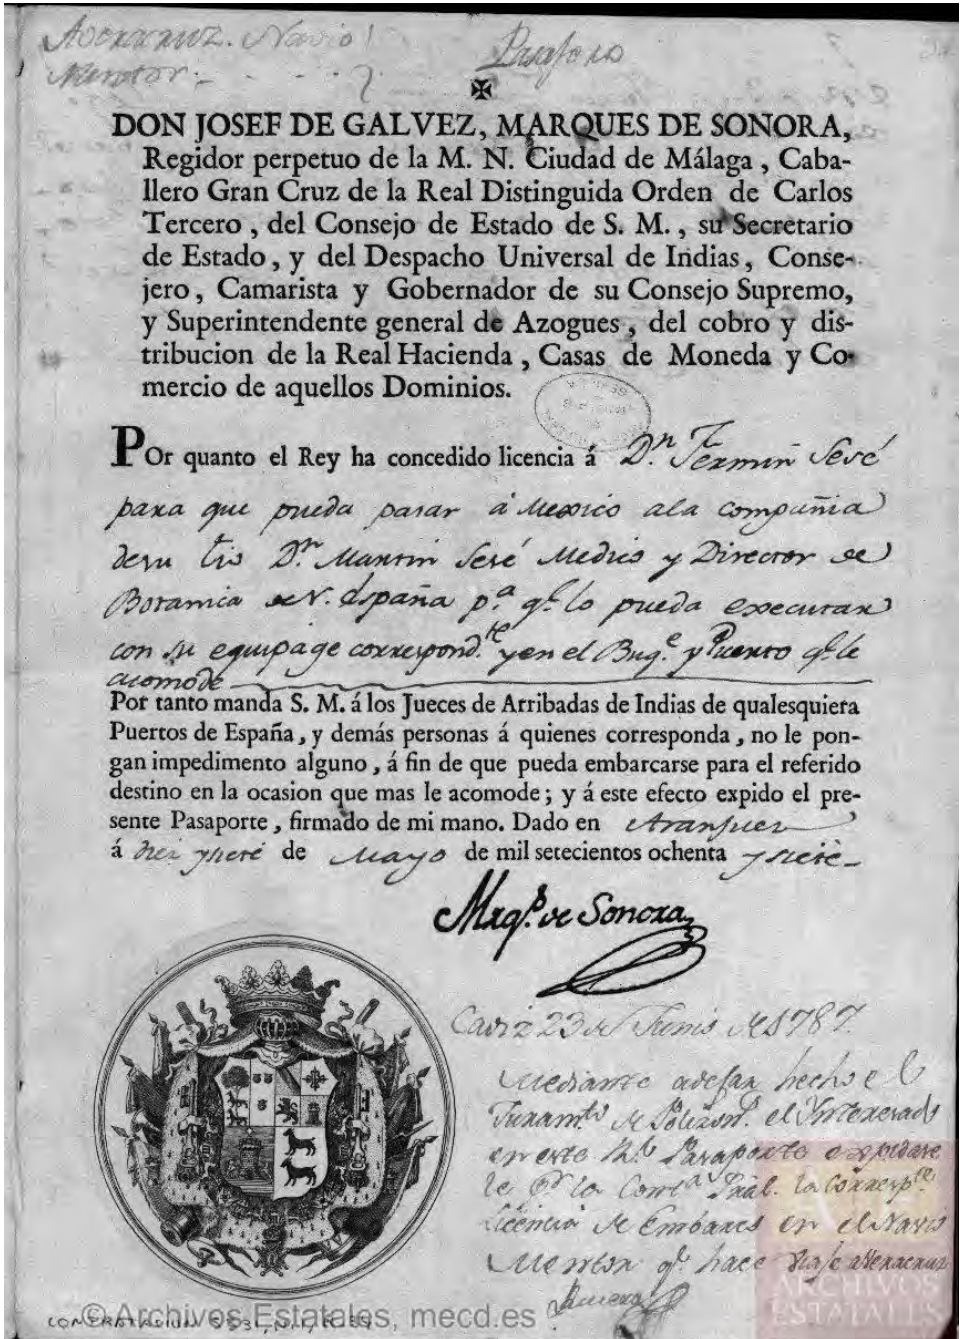 Averacruz. Navio
Mentor.
✠
DON JOSEF DE GALVEZ, MARQUES DE SONORA,
Regidor perpetuo de la M. N. Ciudad de Málaga, Caba-
llero Gran Cruz de la Real Distinguida Orden de Carlos
Tercero, del Consejo de Estado de S. M., su Secretario
de Estado, y del Despacho Universal de Indias, Conse-
jero, Camarista y Gobernador de su Consejo Supremo,
y Superintendente general de Azogues, del cobro y dis-
tribucion de la Real Hacienda, Casas de Moneda y Co-
mercio de aquellos Dominios.
POr quanto el Rey ha concedido licencia á Dn. Fermin Sesé
para que pueda pasar á Mexico ala compañia
desu tio Dn. Martin Sesé Medico y Director de
Botanica de N. España pa. qe. lo pueda executar
con su equipage correspondte. y en el Buqe. y Puerto qe. le
acomode
Por tanto manda S. M. á los Jueces de Arribadas de Indias de qualesquiera
Puertos de España, y demás personas á quienes corresponda, no le pon-
gan impedimento alguno, á fin de que pueda embarcarse para el referido
destino en la ocasion que mas le acomode; y á este efecto expido el pre-
sente Pasaporte, firmado de mi mano. Dado en Aranjuez
á diez y siete de Mayo de mil setecientos ochenta y siete
Marqs. de Sonora
Cadiz 23 de Junio de 1787.
Mediante adejar hecho el
Juramto. de el Ynteresado
en este Rl. Pasaporte expidase
le Pr. la Conta. Pral. la Correspte.
Licencia de Embarco en el Navio
Mentor qe. hace Viaje aVeracruz
© Archivos Estatales, mecd.es
ARCHIVOS
ESTATALES